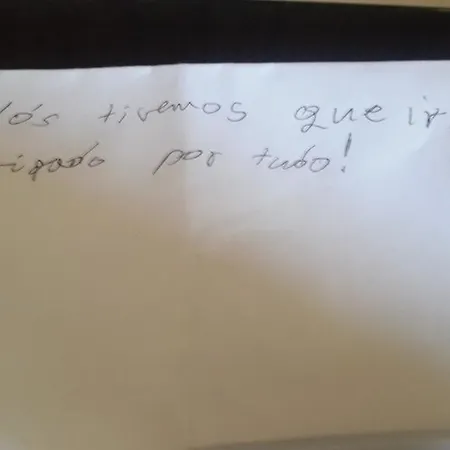 Nós tivemos que ir
rigado por tudo!